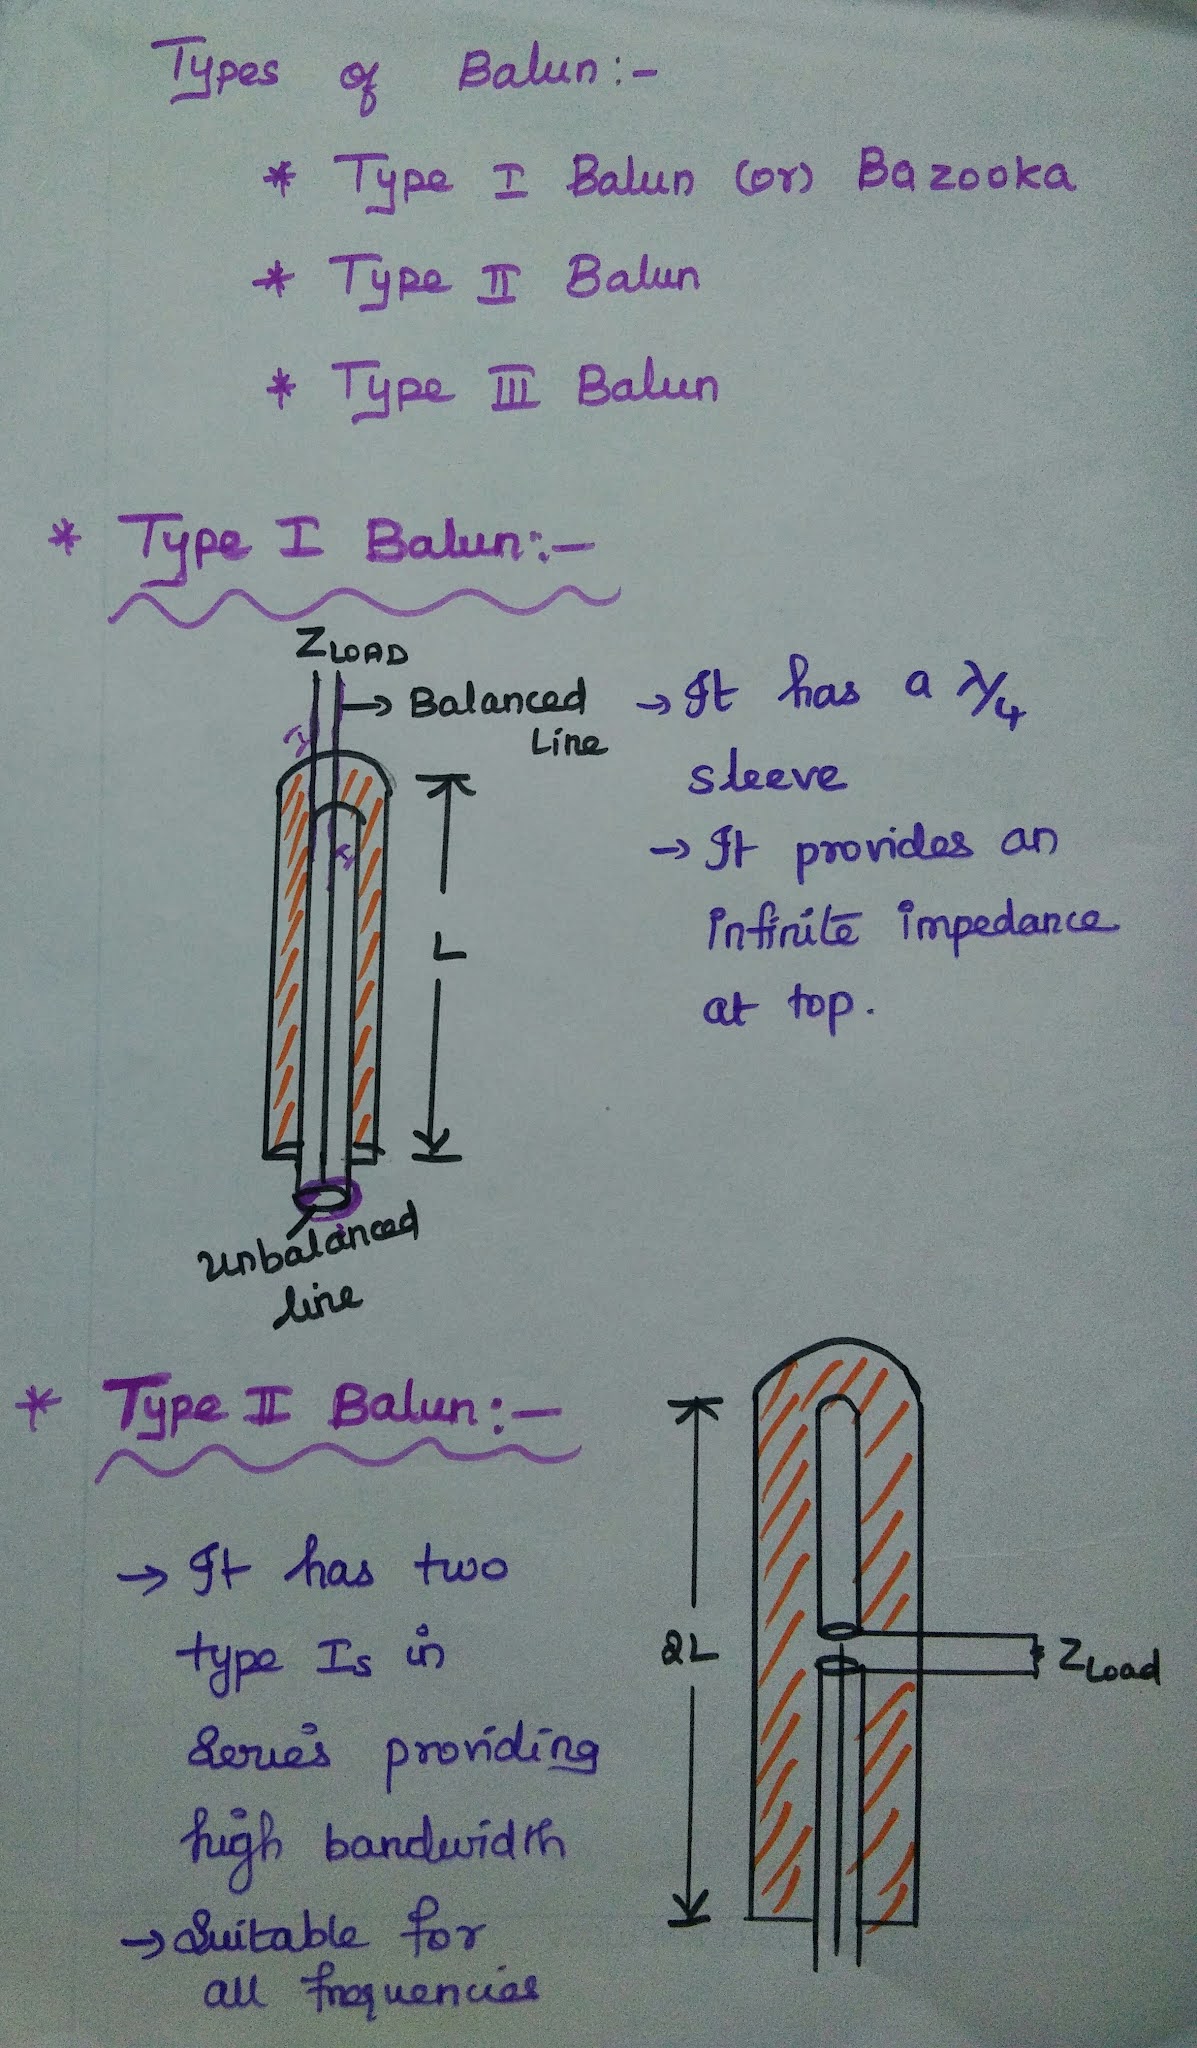 Types of Balun:-
* Type I Balun (or) Bazooka
* Type II Balun
* Type III Balun
* Type I Balun:-
ZLOAD
→ Balanced
Line
L
Unbalanced
line
→ It has a λ/4
sleeve
→ It provides an
infinite impedance
at top.
* Type II Balun:-
→ It has two
type Is in
series providing
high bandwidth
→ Suitable for
all frequencies
2L
ZLoad